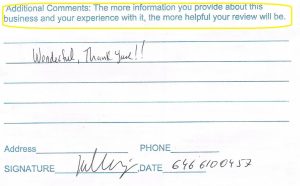 Additional Comments: The more information you provide about this
business and your experience with it, the more helpful your review will be.
Wonderful, Thank you!!
Address PHONE
SIGNATURE DATE 6466100457